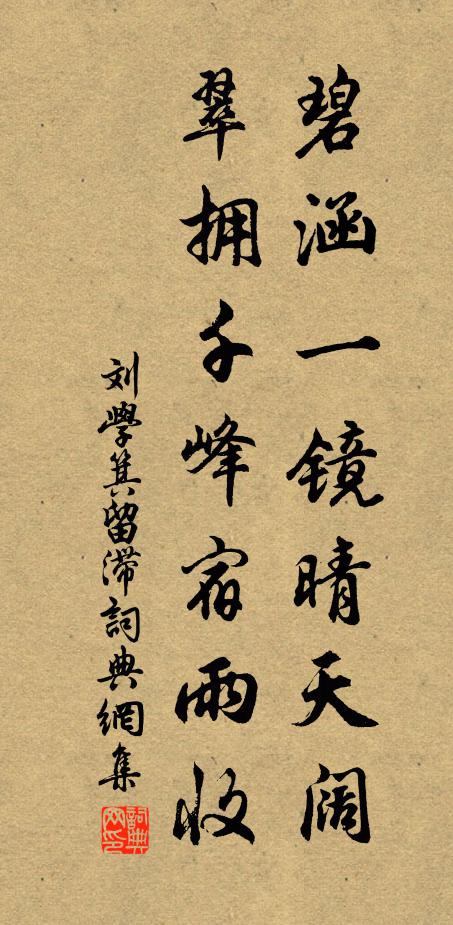 碧涵一镜晴天阔
翠拥千峰宿雨收
刘學箕留滞詞典網集
詞典网印